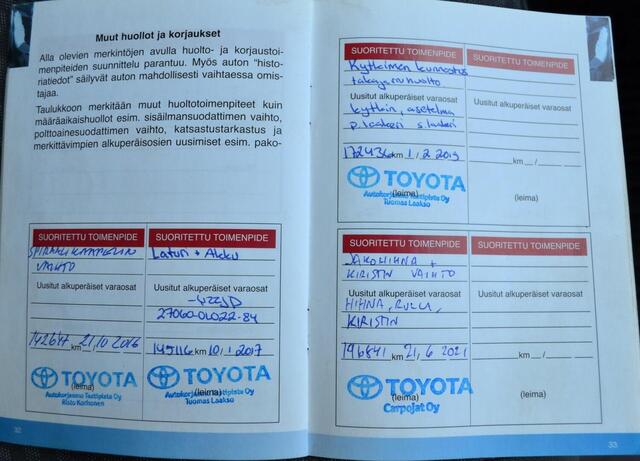 Muut huollot ja korjaukset
Alla olevien merkintöjen avulla huolto- ja korjaustoi-
menpiteiden suunnittelu parantuu. Myös auton "histo-
riatiedot" säilyvät auton mahdollisesti vaihtaessa omis-
tajaa.
Taulukkoon merkitään muut huoltotoimenpiteet kuin
määräaikaishuollot esim. sisäilmansuodattimen vaihto,
polttoainesuodattimen vaihto, katsastustarkastus ja
merkittävimpien alkuperäisosien uusimiset esim. pako-
SUORITETTU TOIMENPIDE
vaihto
Uusitut alkuperäiset varaosat
142647 km 21/10/2016
TOYOTA
(leima)
Autokorjaamo Testipiste Oy
Risto Korhonen
SUORITETTU TOIMENPIDE
Laturi + Akku
Uusitut alkuperäiset varaosat
27060-0L022-84
145116 km 10/1/2017
TOYOTA
(leima)
Autokorjaamo Testipiste Oy
Tuomas Laakso
32
SUORITETTU TOIMENPIDE
Kytkimen kunnostus
takajarruhuolto
Uusitut alkuperäiset varaosat
kytkin, asetelma
p.laakeri s.laakeri
172436 km 1/2 2019
TOYOTA
(leima)
Autokorjaamo Testipiste Oy
Tuomas Laakso
SUORITETTU TOIMENPIDE
Uusitut alkuperäiset varaosat
km __/__
(leima)
SUORITETTU TOIMENPIDE
JAKOHIHNA +
KIRISTIN VAIHTO
Uusitut alkuperäiset varaosat
HIHNA, RULLA,
KIRISTIN
196841 km 21/6 2021
TOYOTA
(leima)
Carpojat Oy
SUORITETTU TOIMENPIDE
Uusitut alkuperäiset varaosat
km __/__
(leima)
33